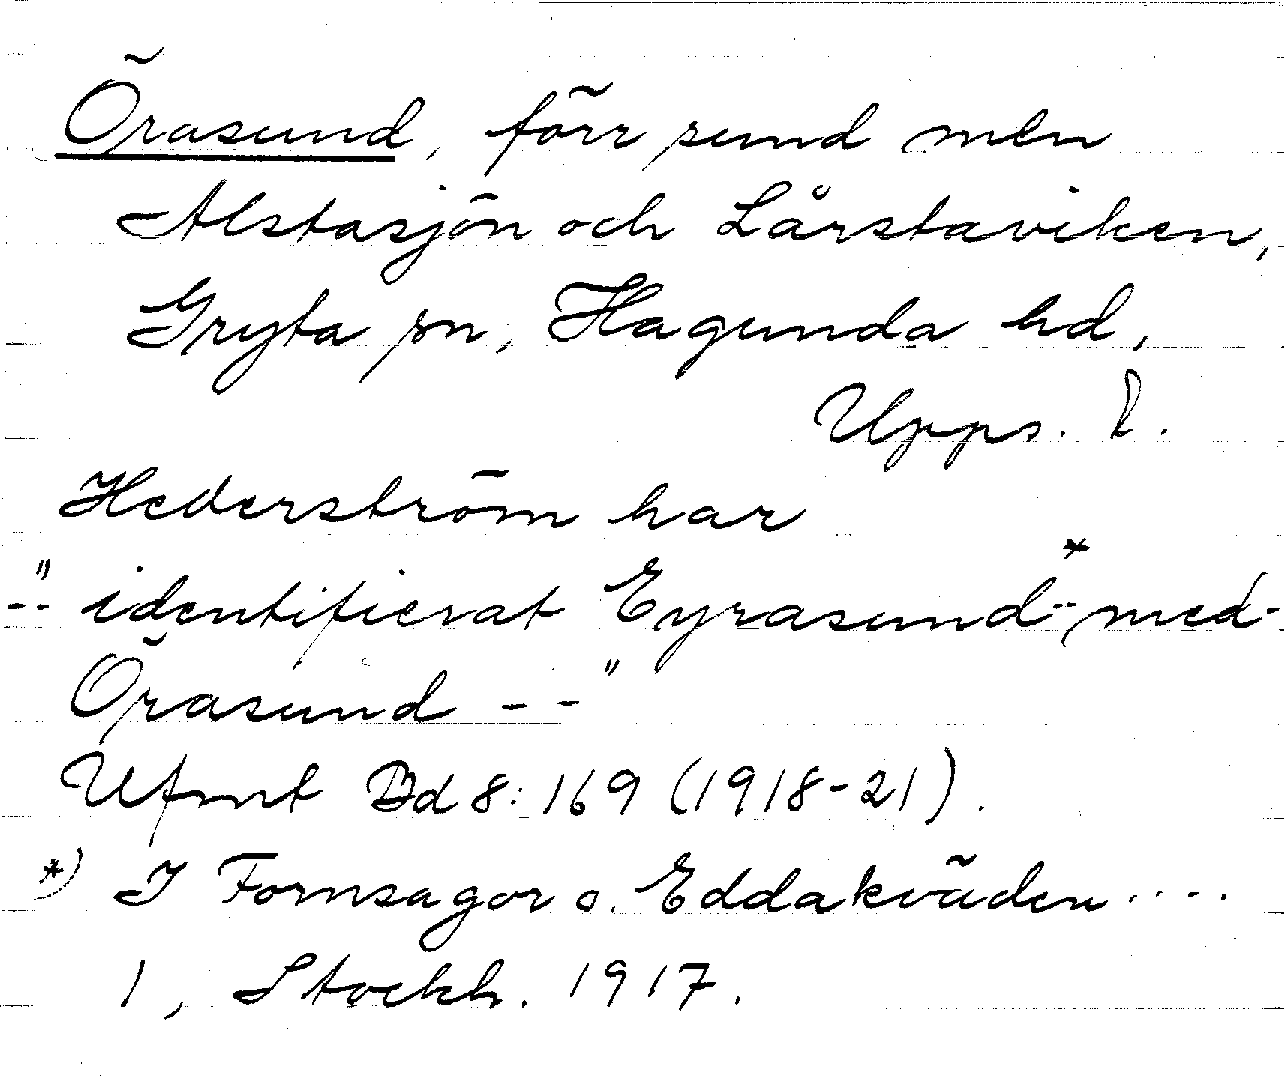 Örasund, förr sund mln
Alstasjön och Lårstaviken,
Gryta sn, Hagunda hd,
Upps. l.
Hederström har
--" identifierat Eyrasund--* med
Örasund --"
Ufmt Bd 8: 169 (1918-21).
*) I Fornsagor o. Eddakväden ....
1, Stockh. 1917.